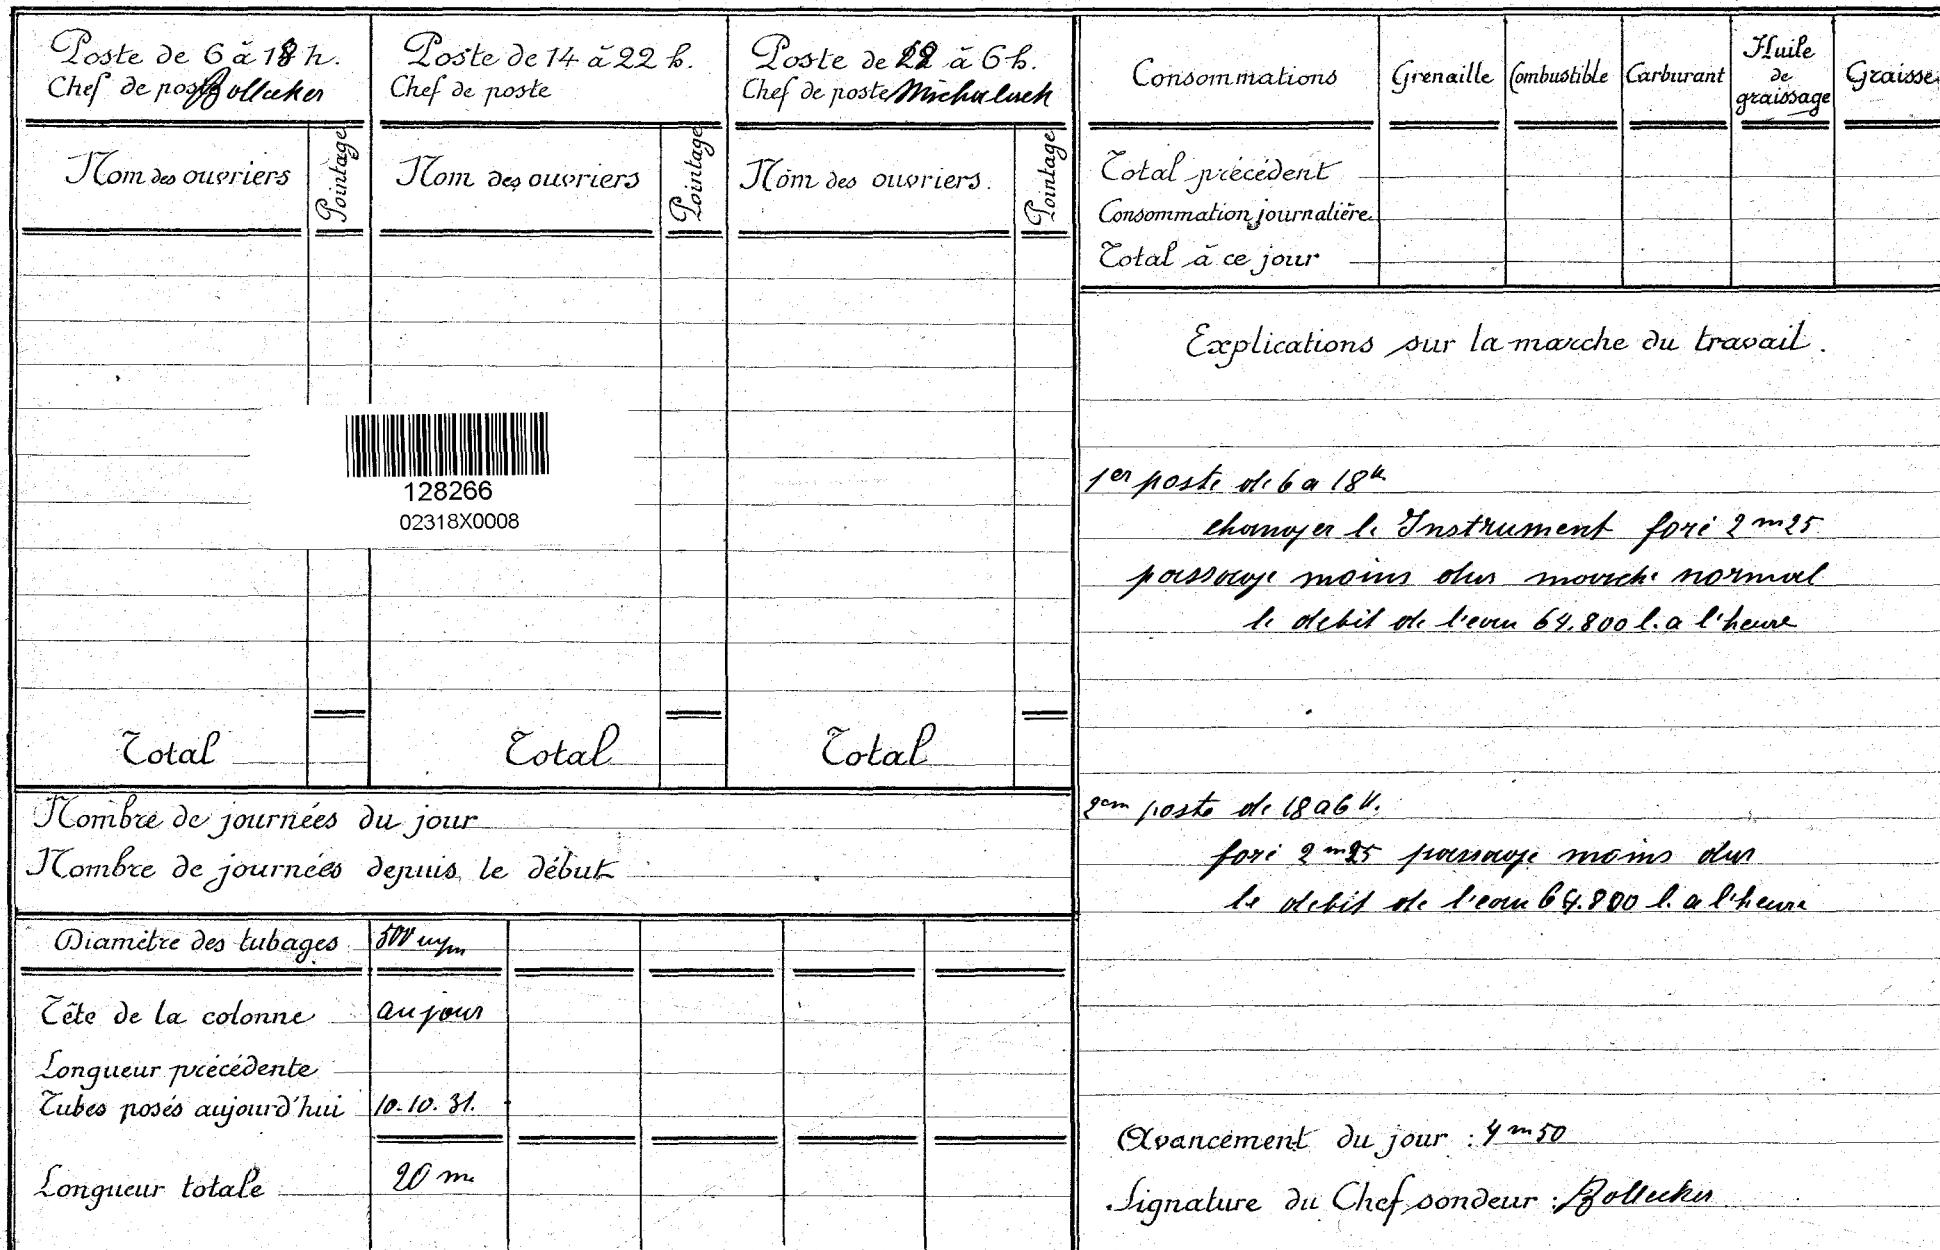 Poste de 6 à 18 h.
Chef de poste Bollecker
Nom des ouvriers
Pointage
Total
Poste de 14 à 22 h.
Chef de poste
Nom des ouvriers
Pointage
Total
Poste de 18 à 6 h.
Chef de poste
Nom des ouvriers.
Pointage
Total
128266
02318X0008
Nombre de journées du jour
Nombre de journées depuis le début
Diamètre des tubages 500 m/m
Tête de la colonne au jour
Longueur précédente
Tubes posés aujourd'hui 10.10.31.
Longueur totale 20 m
Consommations Grenaille Combustible Carburant Huile de graissage Graisse
Total précédent
Consommation journalière
Total à ce jour
Explications sur la marche du travail.
1er poste de 6 a 18h
changer le Instrument foré 2 m 25
passage moins dur marche normal
le debit de l'eau 64.800 l. a l'heure
2em poste de 18 a 6 h.
foré 2 m 25 passage moins dur
le debit de l'eau 64.800 l. a l'heure
Avancement du jour : 4 m 50
Signature du Chef sondeur : Bollecker